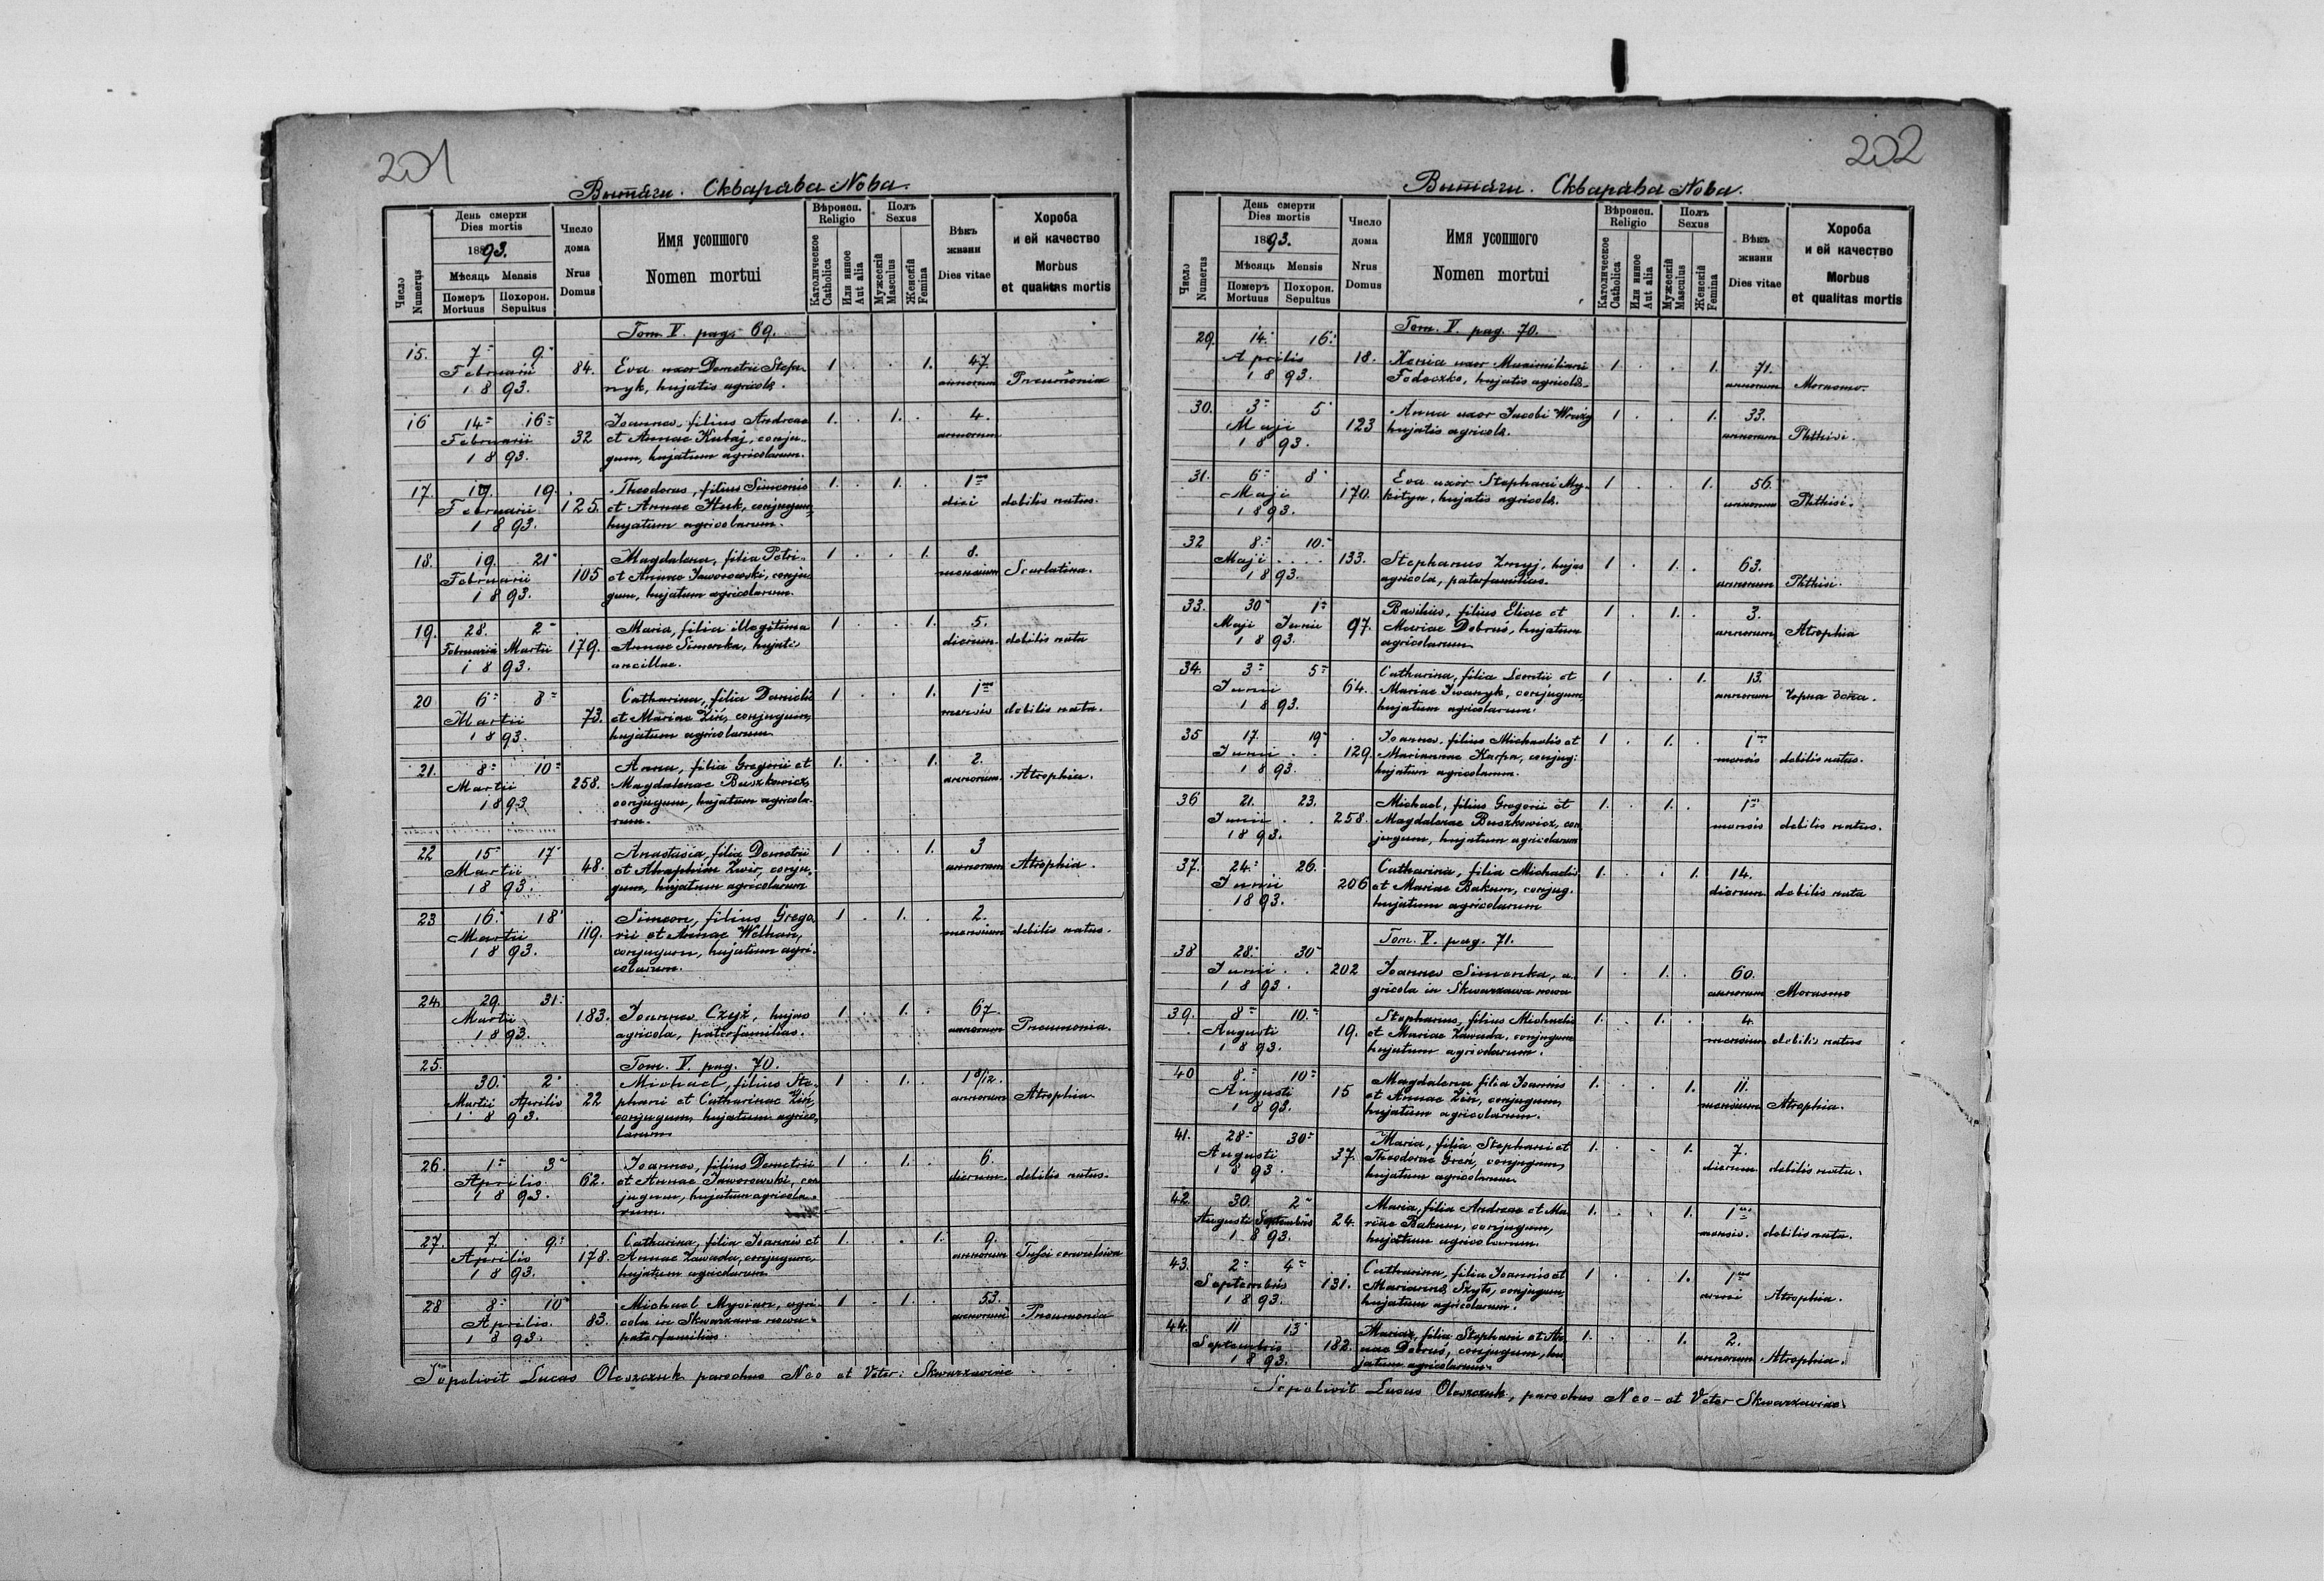 201
Вытаги. Скварава Nова.
Число
Numerus
День смерти
Dies mortis
1893.
Мѣсяць Mensis
Померъ Похорон.
Mortuus Sepultus
Число
дома
Nrus
Domus
Имя усопшого
Nomen mortui
Вѣроисп.
Religio
Католическое
Catholica
Или инное
Aut alia
Полъ
Sexus
Мужескій
Masculus
Женскій
Femina
Вѣкъ
жизни
Dies vitae
Хороба
и ей качество
Morbus
et qualitas mortis
Tom. V. pag. 69.
15. 7 9 Februarii 1893. 84. Eva uxor Demetrii Stepa-
nyk, hujatis agricolae. 1 . . 1. 47 annorum Pneumonia
16 14 16 Februarii 1893. 32 Joannes, filius Andreae
et Annae Kubaj, conju-
gum, hujatum agricolarum. 1. . 1. . 4. annorum
17. 17. 19. Februarii 1893. 125. Theodorus, filius Simeonis
et Annae Huk, conjugum,
hujatum agricolarum. 1. . 1. . 1 diei debilis natus.
18. 19. 21 Februarii 1893. 105 Magdalena, filia Petri
et Annae Jaworowski, conju-
gum, hujatum agricolarum. 1 . . 1. 8. mensium Scarlatina.
19. 28. 2 Februarii Martii 1893. 179. Maria, filia illegitima
Annae Simonka, hujatis
ancillae. 1 . . 1. 5. dierum debilis nata
20 6 8 Martii 1893. 73. Catharina, filia Danielis
et Mariae Ziń, conjugum,
hujatum agricolarum. 1 . . 1. 1 mensis debilis nata.
21. 8 10 Martii 1893 258. Anna, filia Gregorii et
Magdalenae Buszkowicz,
conjugum, hujatum agricola-
rum. 1. . . 1. 2. annorum Atrophia.
22 15 17 Martii 1893. 48. Anastasia, filia Demetrii
et Zwir, conju-
gum, hujatum agricolarum 1 . . 1. 3 annorum Atrophia.
23 16. 18 Martii 1893. 119. Simeon, filius Grego
rii et Annae Welhan,
conjugum, hujatum agri-
colarum. 1 . 1. . 2. mensium debilis natus.
24. 29. 31 Martii 1893. 183. Joannes Czyż, hujas
agricola, paterfamilias. 1 . 1. . 67 annorum Pneumonia.
25. Tom. V. pag. 70.
30. 2 Martii Aprilis 1893. 22 Michael, filius Ste-
phani et Catharinae Ziń,
conjugum, hujatum agrico-
larum 1 . 1. . 1 8/12. annorum Atrophia.
26. 1 3 Aprilis 1893. 62. Joannes, filius Demetrii
et Annae Jaworowski, con-
jugum, hujatum agricola-
rum. 1 . 1. . 6. dierum debilis natus.
27. 7. 9 Aprilis 1893. 178. Catharina, filia Joannis et
Annae Zawada, conjugum,
hujatum agricolarum 1. . . 1. 9. annorum Tussi convulsiva
28 8 10 Aprilis 1893. 83. Michael Mysian, agri-
cola in Skwarzawa nowa
paterfamilias. 1 . 1. . 53. annorum Pneumonia
Sepelivit Lucas Oleszczuk parochus Neo et Veter: Skwarzaviae
202
Вытаги. Скварава Nова.
Число
Numerus
День смерти
Dies mortis
1893.
Мѣсяць Mensis
Померъ Похорон.
Mortuus Sepultus
Число
дома
Nrus
Domus
Имя усопшого
Nomen mortui
Вѣроисп.
Religio
Католическое
Catholica
Или инное
Aut alia
Полъ
Sexus
Мужескій
Masculus
Женскій
Femina
Вѣкъ
жизни
Dies vitae
Хороба
и ей качество
Morbus
et qualitas mortis
Tom. V. pag. 70.
29. 14. 16. Aprilis 1893. 18. Xenia uxor Maximiliani
Fedoczko, hujatis agricolae 1 . . 1. 71. annorum Morasmo.
30. 3 5 Maji 1893. 123 Anna uxor Jacobi
hujatis agricolae. 1 . . 1. 33. annorum Phthisi.
31. 6 8 Maji 1893. 170. Eva uxor Stephani My-
kityn, hujatis agricolae. 1 . . 1. 56 annorum Phthisi.
32 8. 10. Maji 1893. 133. Stephanus Zmyj, hujas
agricola, paterfamilias. 1 . 1. . 63. annorum Phthisi
33. 30 1 Maji Junii 1893. 97. Basilius, filius Eliae et
Mariae Dobruś, hujatum
agricolarum 1 . 1. . 3. annorum Atrophia
34. 3 5 Junii 1893. 64. Catharina, filia Leontii et
Mariae Iwanyk, conjugum,
hujatum agricolarum. 1 . . 1. 13. annorum
35 17. 19 Junii 1893. 129. Joannes, filius Michaelis et
Mariannae Karpa, conjug:
hujatum agricolarum. 1 . 1. . 1 mensis debilis natus.
36 21. 23. Junii 1893. 258. Michael, filius Gregorii et
Magdalenae Buszkowicz, con-
jugum, hujatum agricolarum 1. . 1. . 1 mensis debilis natus.
37. 24. 26. Junii 1893. 206 Catharina, filia Michaelis
et Mariae Bakum, conjug.
hujatum agricolarum 1. . . 1. 14. dierum debilis nata
Tom. V. pag. 71.
38 28. 30 Junii 1893. 202 Joannes Simonka, a-
gricola in Skwarzawa nowa 1 . 1. . 60. annorum Morasmo
39. 8 10. Augusti 1893. 19. Stephanus, filius Michaelis
et Mariae Zawada, conjugum
hujatum agricolarum. 1. . 1. . 4. mensium debilis natus
40 8 10 Augusti 1893. 15 Magdalena filia Joannis
et Annae Ziń, conjugum,
hujatum agricolarum. 1. . . 1. 11. mensium Atrophia.
41. 28 30 Augusti 1893. 37. Maria, filia Stephani et
Theodorae Greń, conjugum,
hujatum agricolarum 1. . . 1. 7. dierum debilis nata.
42 30. 2 Augusti Septembris 1893. 24. Maria, filia Andreae et Ma
riae Bakum, conjugum,
hujatum agricolarum. 1. . . 1. 1 mensis. debilis nata.
43. 2 4 Septembris 1893. 131. Catharina, filia Joannis et
Mariannae Szyło, conjugum,
hujatum agricolarum. 1 . . 1. 1 anni Atrophia.
44. 11 13 Septembris 1893. 182. Maria, filia Stephani et An-
nae Dobruś, conjugum, hu-
jatum agricolarum. 1. . . 1. 2. annorum Atrophia.
Sepelivit Lucas Oleszczuk, parochus Neo- et Veter Skwarzaviae.